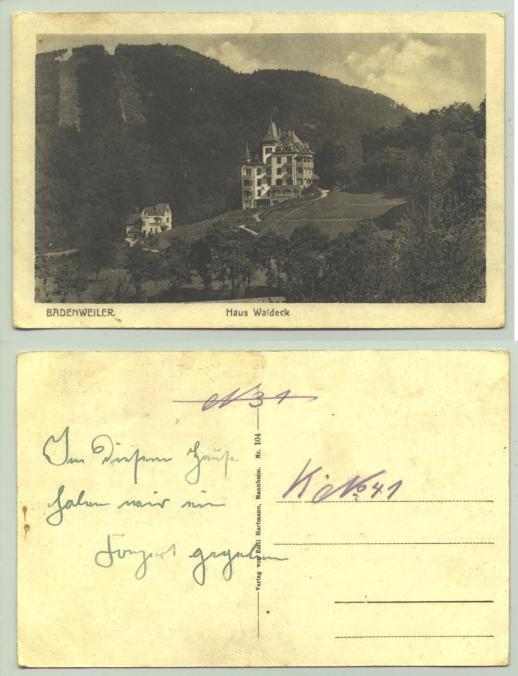 BADENWEILER.
Haus Waldeck
N 31
In diesem Hause
haben wir ein
Konzert gegeben
Verlag von Emil Hartmann, Mannheim. Nr. 104
K No 41